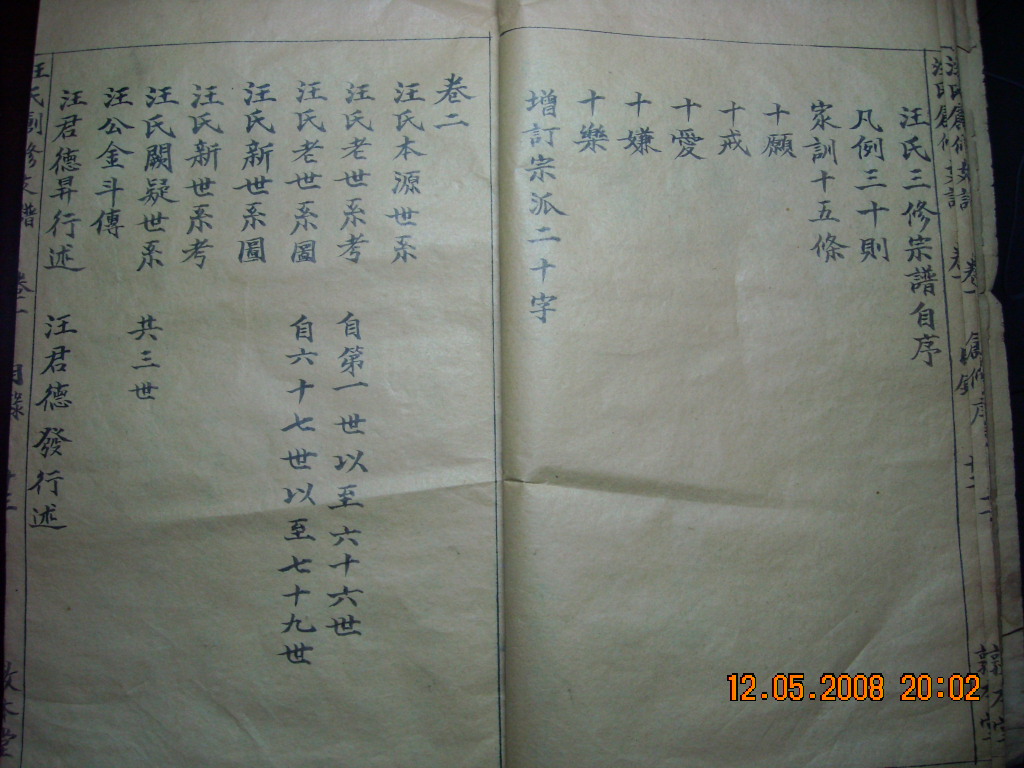 汪氏三修宗譜自序
凡例三十則
家訓十五條
十願
十戒
十愛
十嫌
十樂
增訂宗派二十字
卷二
汪氏本源世系
汪氏老世系考 自第一世以至六十六世
汪氏老世系圖 自六十七世以至七十九世
汪氏新世系圖
汪氏新世系考
汪氏闕疑世系 共三世
汪公金斗傳
汪君德昇行述 汪君德發行述
卷一 目錄
12.05.2008 20:02